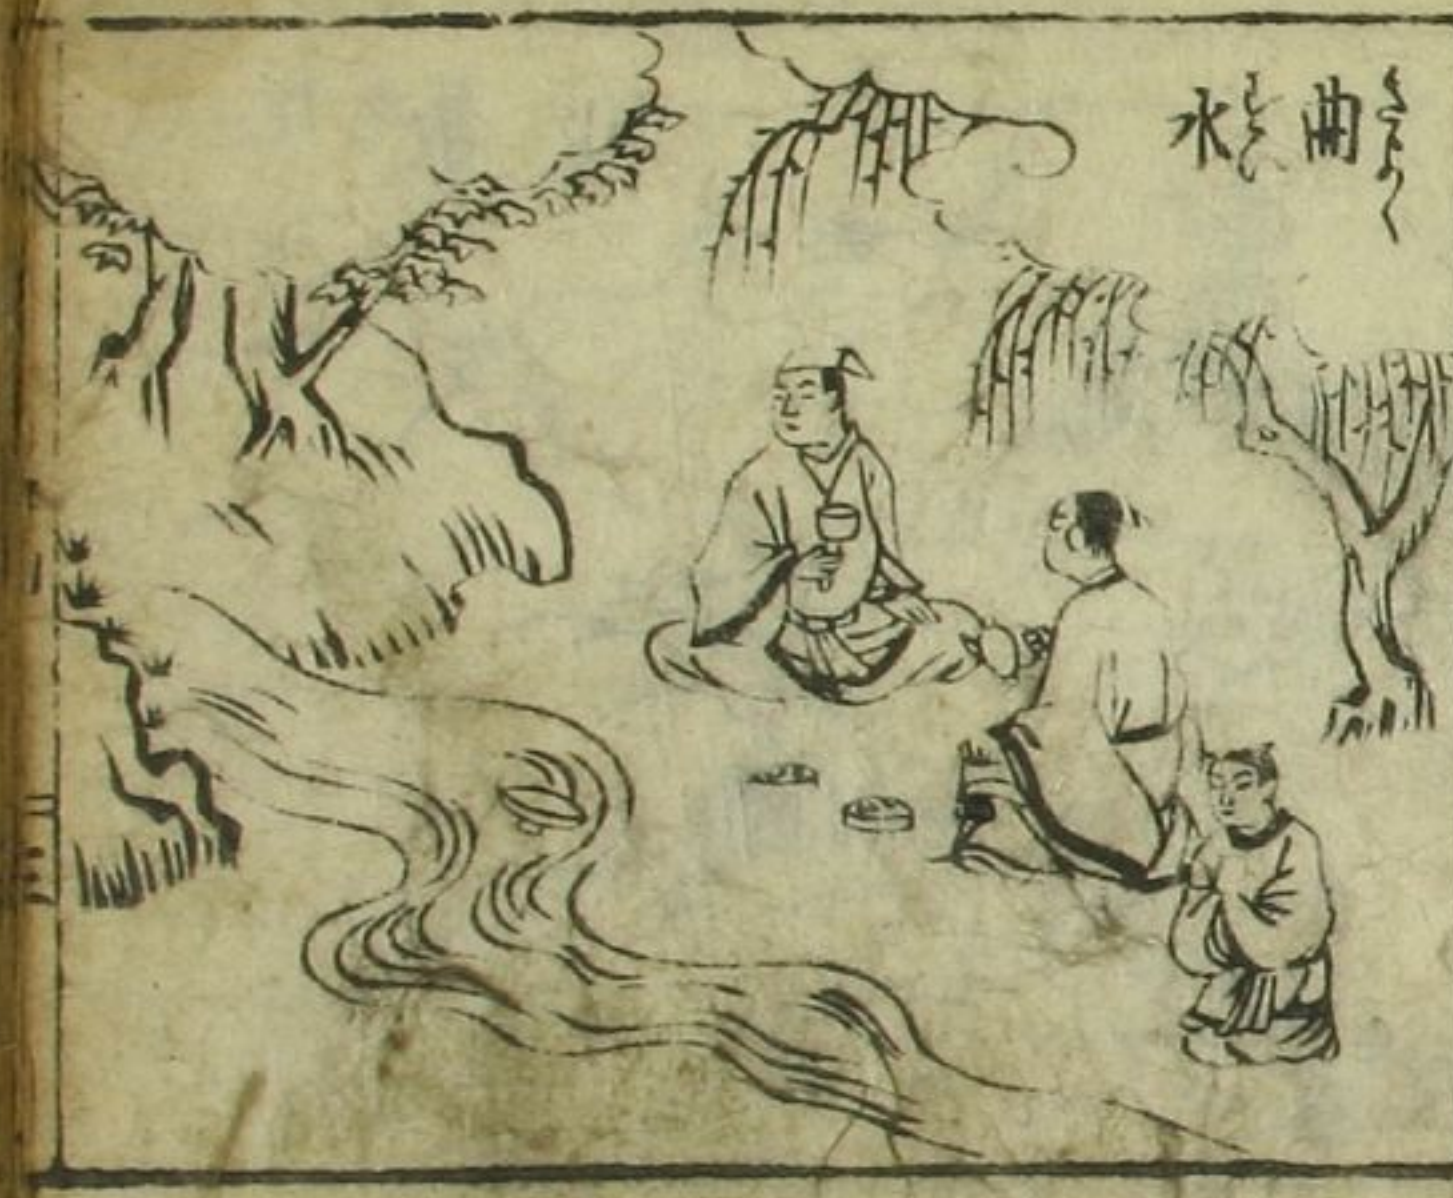 曲水
きよく
すい